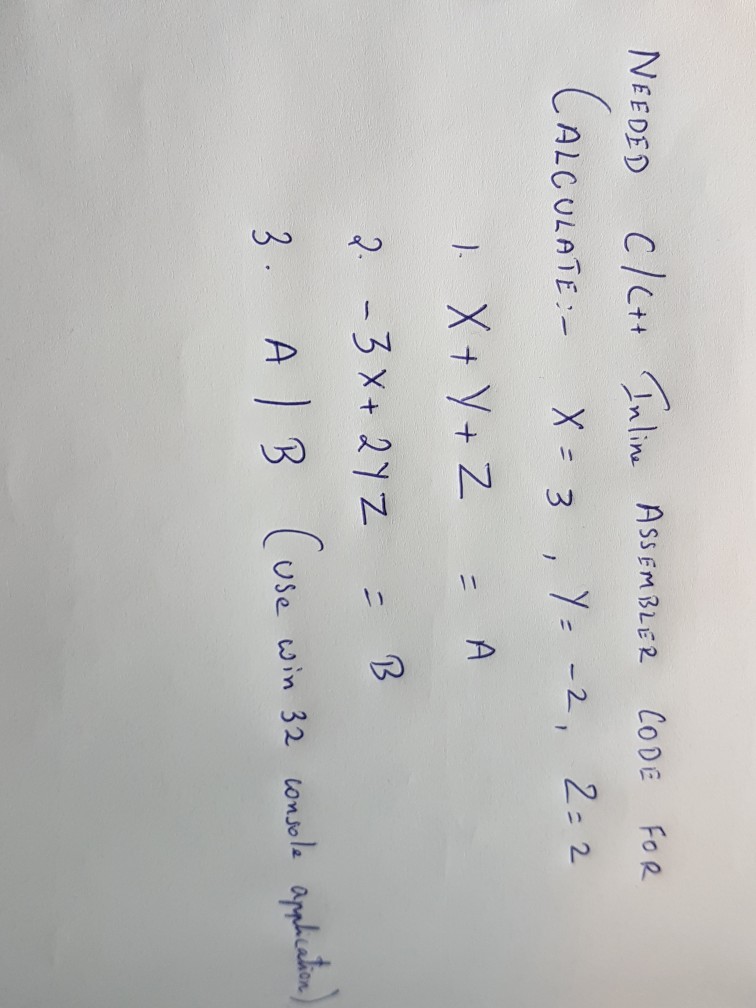 NEEDED C/C++ Inline ASSEMBLER CODE FOR
CALCULATE:- X = 3 , Y = -2, Z = 2
1. X + Y + Z = A
2. -3X + 2YZ = B
3. A | B (use win 32 console application)